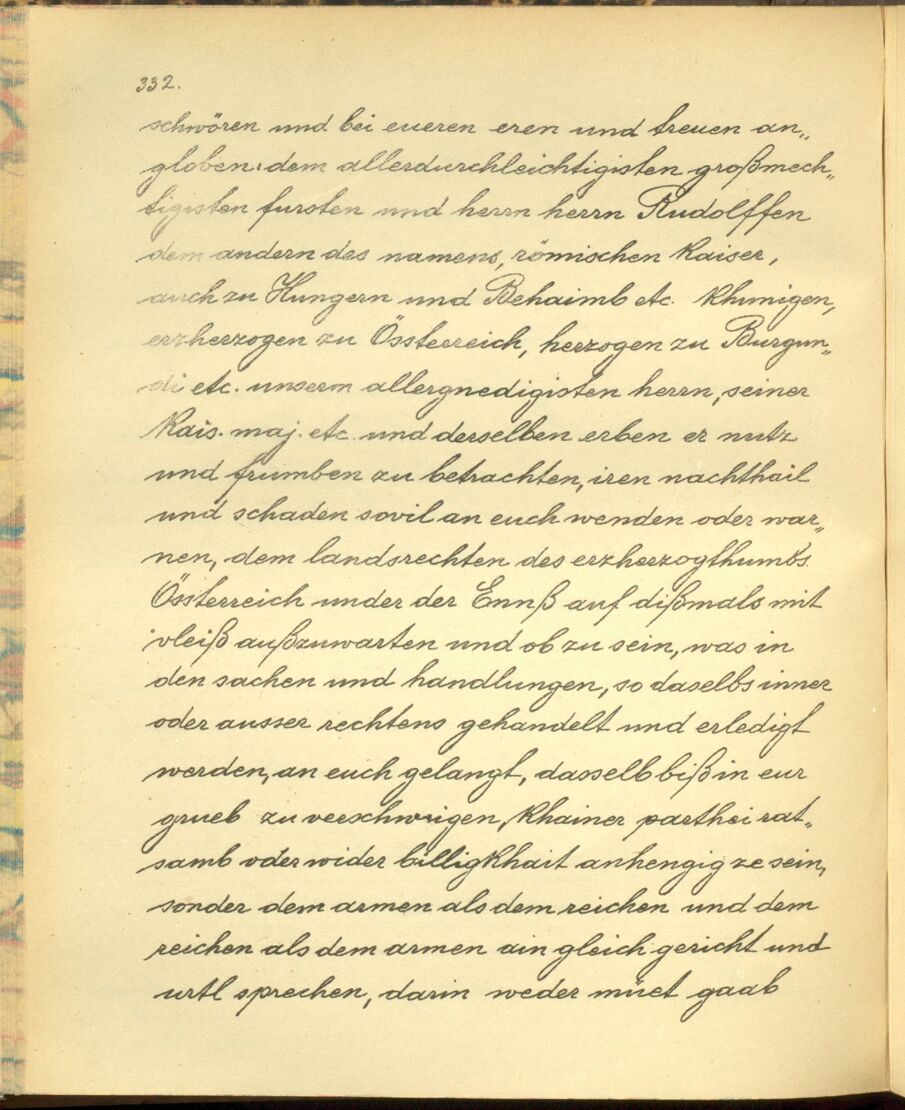 332.
schwören und bei eueren eren und treuen an„
globen: dem allerdurchleichtigisten großmech„
tigisten fursten und herrn herrn Rudolffen
dem andern des namens, römischen Kaiser,
auch zu Hungern und Behaimb etc. Khunigen,
erzherzogen zu Össterreich, herzogen zu Burgun„
di etc. unserm allergnedigisten herrn, seiner
Kais. maj. etc. und derselben erben er nutz
und frumben zu betrachten, iren nachthail
und schaden sovil an euch wenden oder war„
nen, dem landsrechten des erzherzogthumbs
Össterreich under der Ennß auf dißmals mit
vleiß außzuwarten und ob zu sein, was in
den sachen und handlungen, so daselbs inner
oder ausser rechtens gehandelt und erledigt
werden, an euch gelangt, dasselb biß in eur
grueb zu verschweigen, Khainer parthei rat„
samb oder wider billigkhait anhengig ze sein,
sonder dem armen als dem reichen und dem
reichen als dem armen ain gleich gericht und
urtl sprechen, darin weder müet gaab